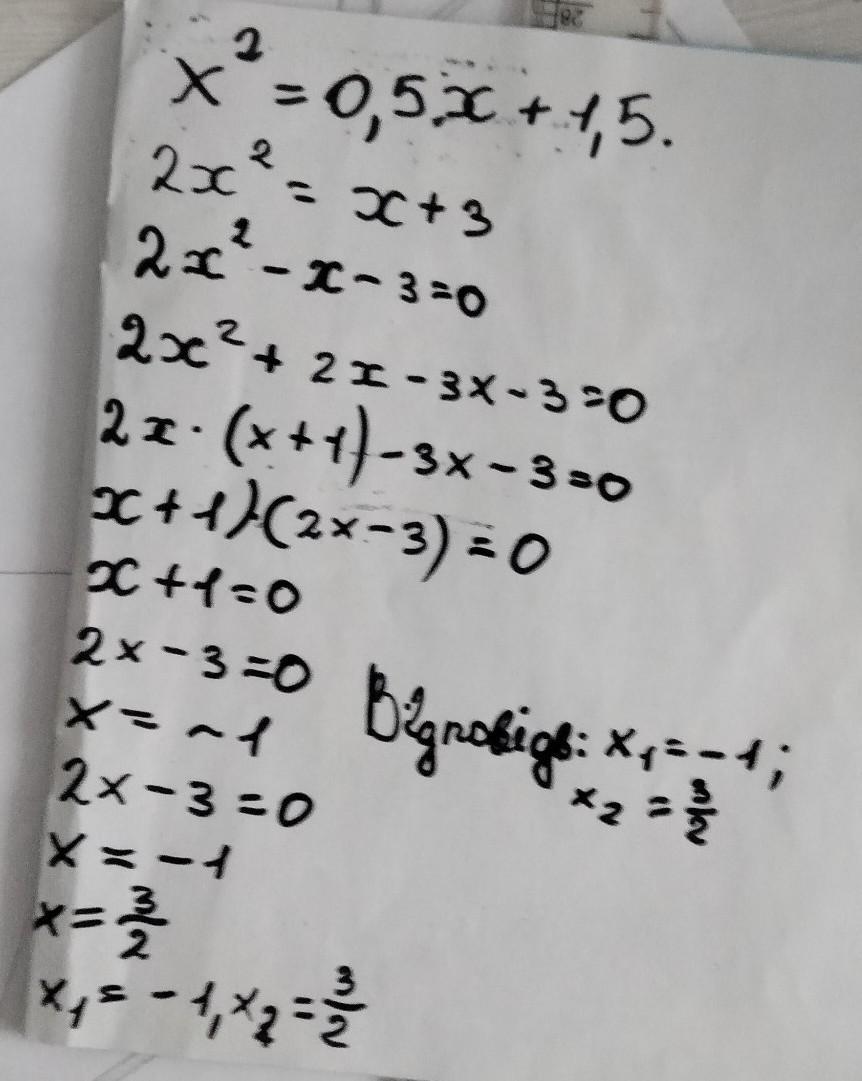 x² = 0,5.x + 1,5.
2x² = x + 3
2x² - x - 3 = 0
2x² + 2x - 3x - 3 = 0
2x · (x + 1) - 3x - 3 = 0
x + 1) · (2x - 3) = 0
x + 1 = 0
2x - 3 = 0
x = ~1
2x - 3 = 0
x = -1
x = 3/2
x₁ = -1, x₂ = 3/2
Відповідь: x₁ = -1;
x₂ = 3/2